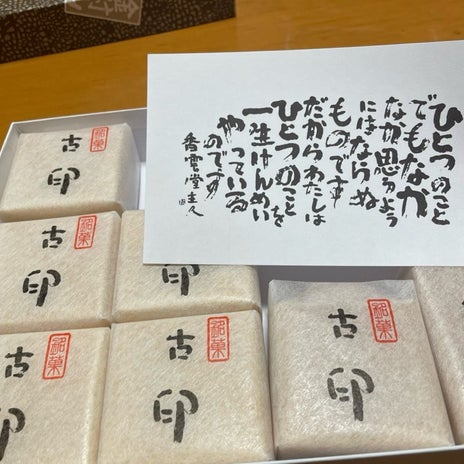 ひとつのこと
でもなか
なか思うよう
にはならぬ
ものです
だからわたしは
ひとつのことを
一生けんめい
やっている
のです
香雲堂主人
銘菓
古印
銘菓
古印
印
銘菓
古印
銘菓
古印
銘菓
古印